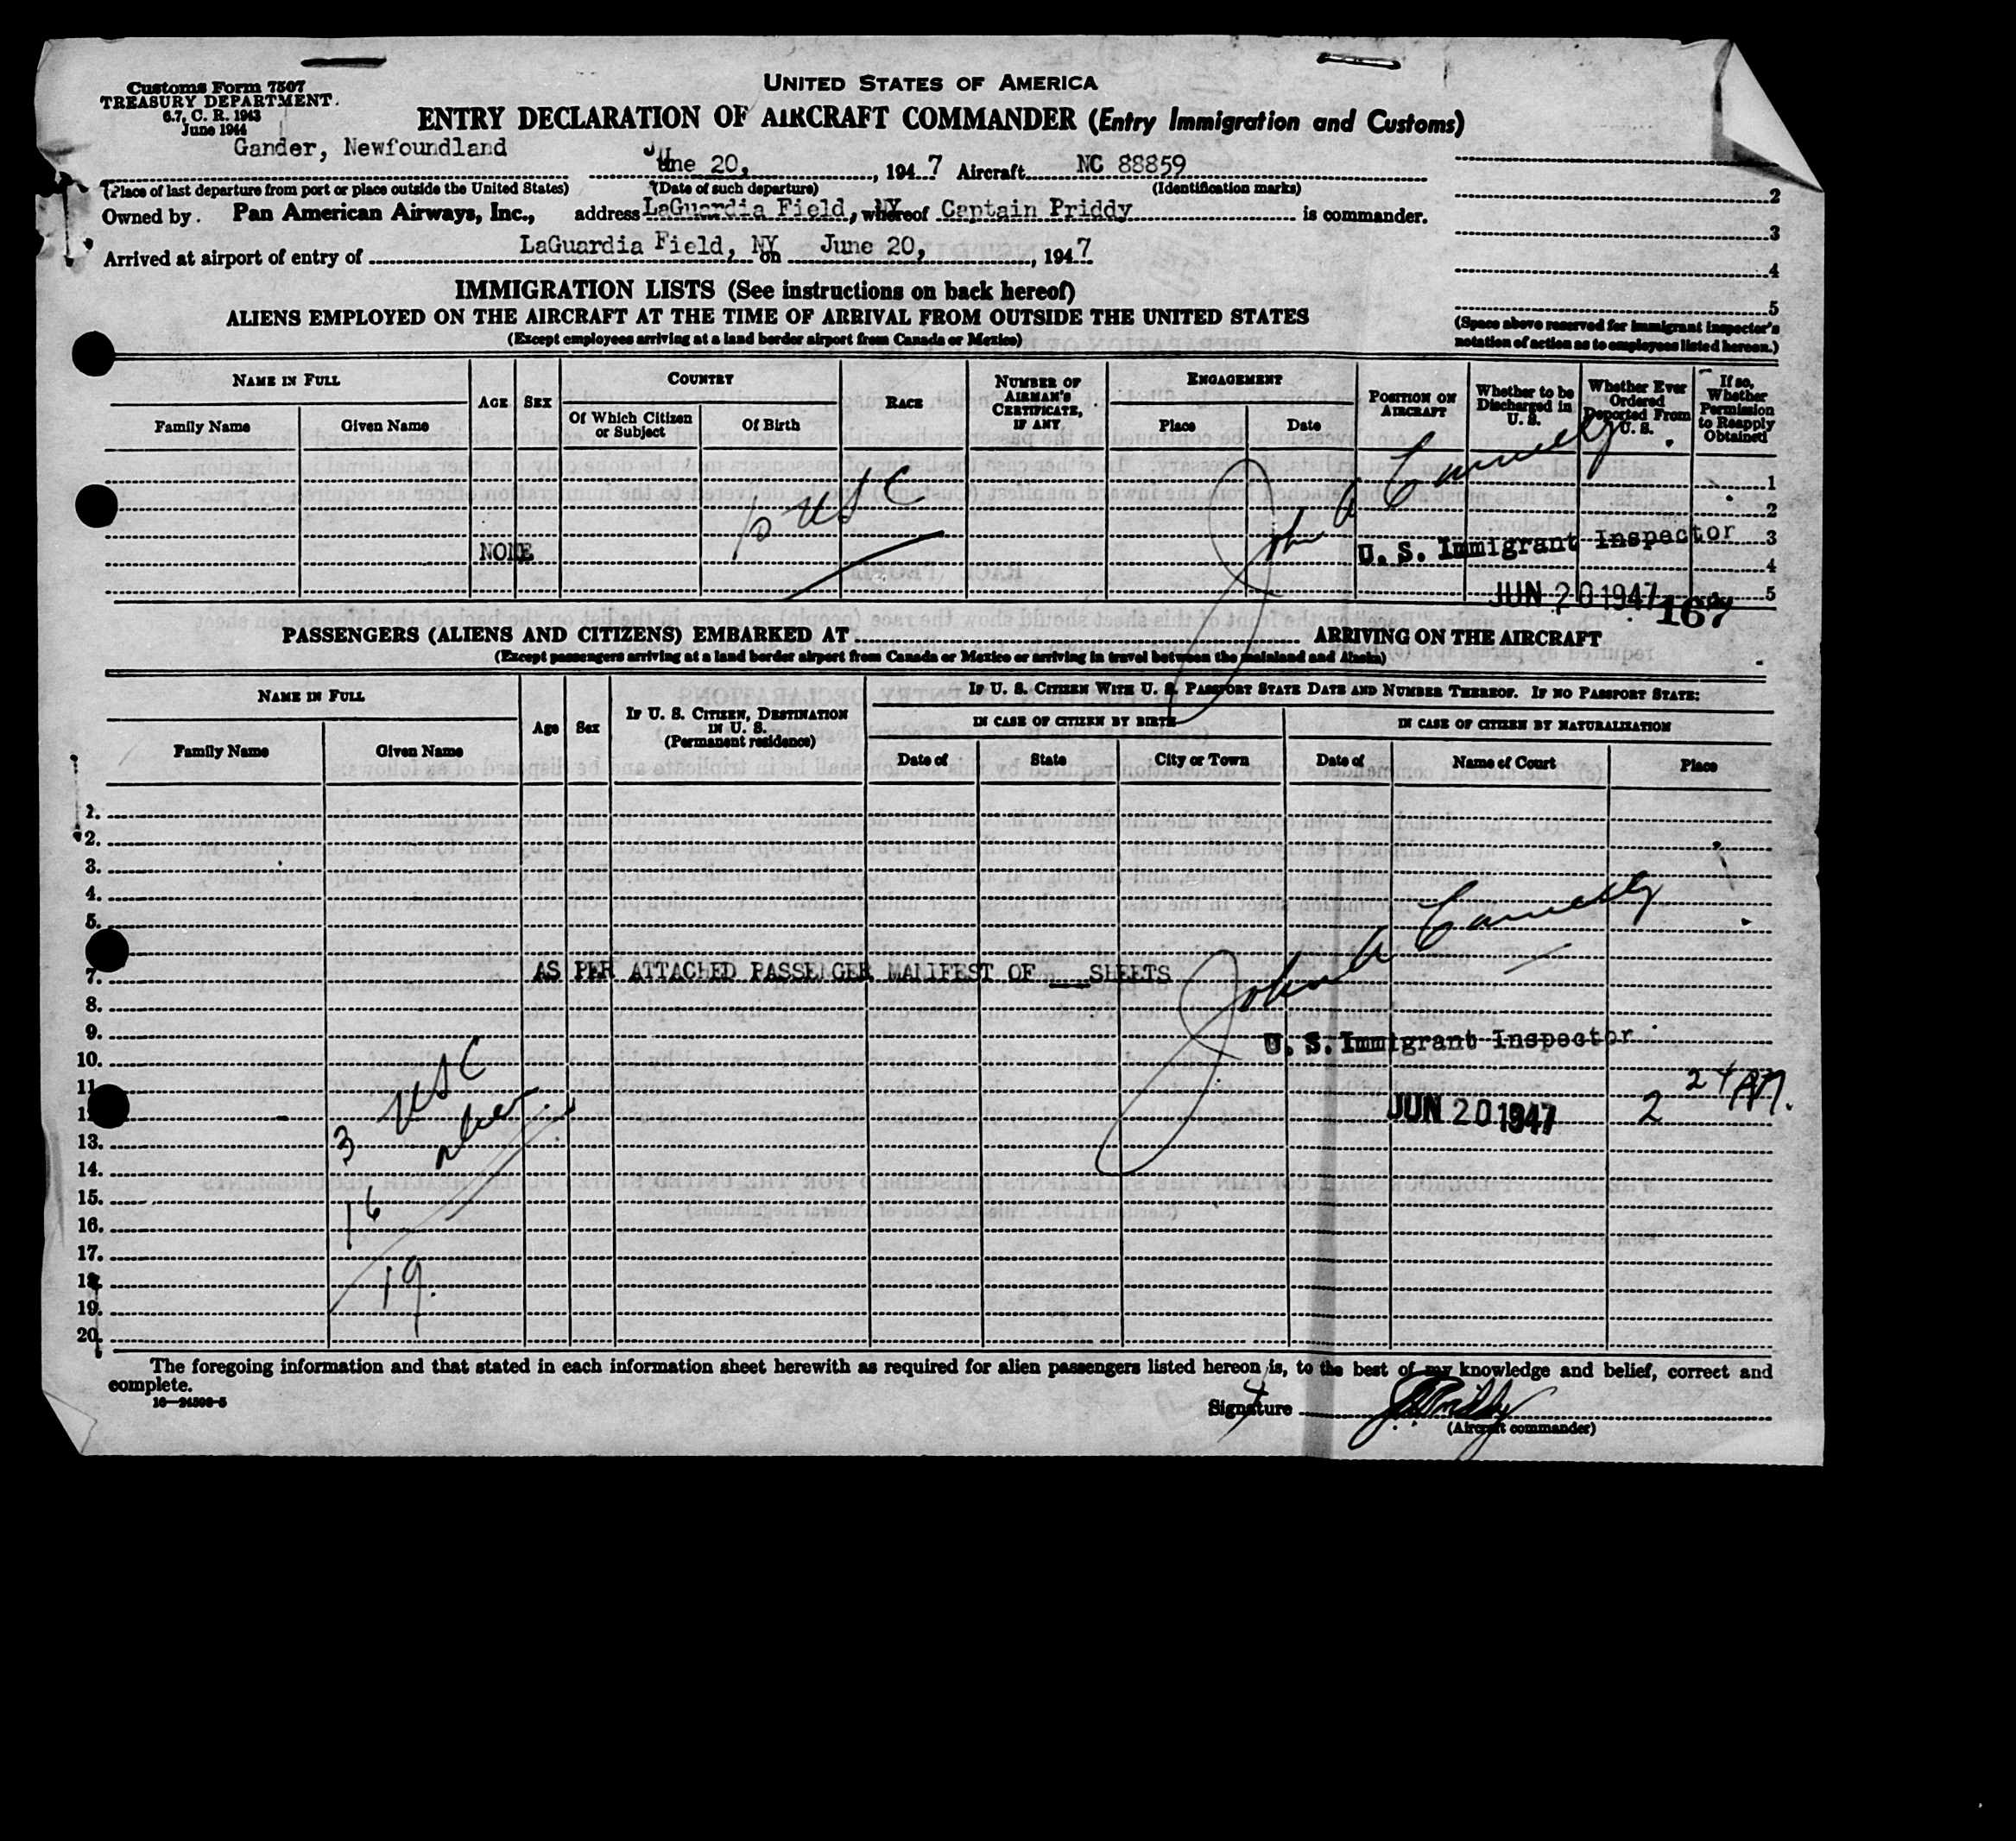 Customs Form 7507
TREASURY DEPARTMENT.
6.7, C. R. 1943
June 1944
UNITED STATES OF AMERICA
ENTRY DECLARATION OF AIRCRAFT COMMANDER (Entry Immigration and Customs)
Gander, Newfoundland June 20, , 194 7 Aircraft NC 88859
(Place of last departure from port or place outside the United States) (Date of such departure) (Identification marks)
2
Owned by Pan American Airways, Inc., address LaGuardia Field, NY whereof Captain Priddy is commander.
3
Arrived at airport of entry of LaGuardia Field, NY on June 20, , 194 7
4
5
(Space above reserved for immigrant inspector's notation of action as to employees listed hereon.)
IMMIGRATION LISTS (See instructions on back hereof)
ALIENS EMPLOYED ON THE AIRCRAFT AT THE TIME OF ARRIVAL FROM OUTSIDE THE UNITED STATES
(Except employees arriving at a land border airport from Canada or Mexico)
NAME IN FULL AGE SEX COUNTRY RACE NUMBER OF AIRMAN'S CERTIFICATE, IF ANY ENGAGEMENT POSITION ON AIRCRAFT Whether to be Discharged in U. S. Whether Ever Ordered Deported From U. S. If so, Whether Permission to Reapply Obtained
Family Name Given Name Of Which Citizen or Subject Of Birth Place Date
1
2
3
4
5
NONE
USC
John A
U. S. Immigrant Inspector
JUN 20 1947
167
PASSENGERS (ALIENS AND CITIZENS) EMBARKED AT ARRIVING ON THE AIRCRAFT
(Except passengers arriving at a land border airport from Canada or Mexico or arriving in travel between the mainland and Alaska)
NAME IN FULL Age Sex IF U. S. CITIZEN, DESTINATION IN U. S. (Permanent residence) IF U. S. CITIZEN WITH U. S. PASSPORT STATE DATE AND NUMBER THEREOF. IF NO PASSPORT STATE:
IN CASE OF CITIZEN BY BIRTH IN CASE OF CITIZEN BY NATURALIZATION
Family Name Given Name Date of State City or Town Date of Name of Court Place
1.
2.
3.
4.
5.
7. AS PER ATTACHED PASSENGER MANIFEST OF SHEETS
John A
8.
9.
U. S. Immigrant Inspector
10.
11.
3 USC
JUN 20 1947 2 24 AM.
13.
14.
15.
16
16.
17.
18.
19
19.
20.
The foregoing information and that stated in each information sheet herewith as required for alien passengers listed hereon is, to the best of my knowledge and belief, correct and
complete.
16—24506-5
Signature
(Aircraft commander)